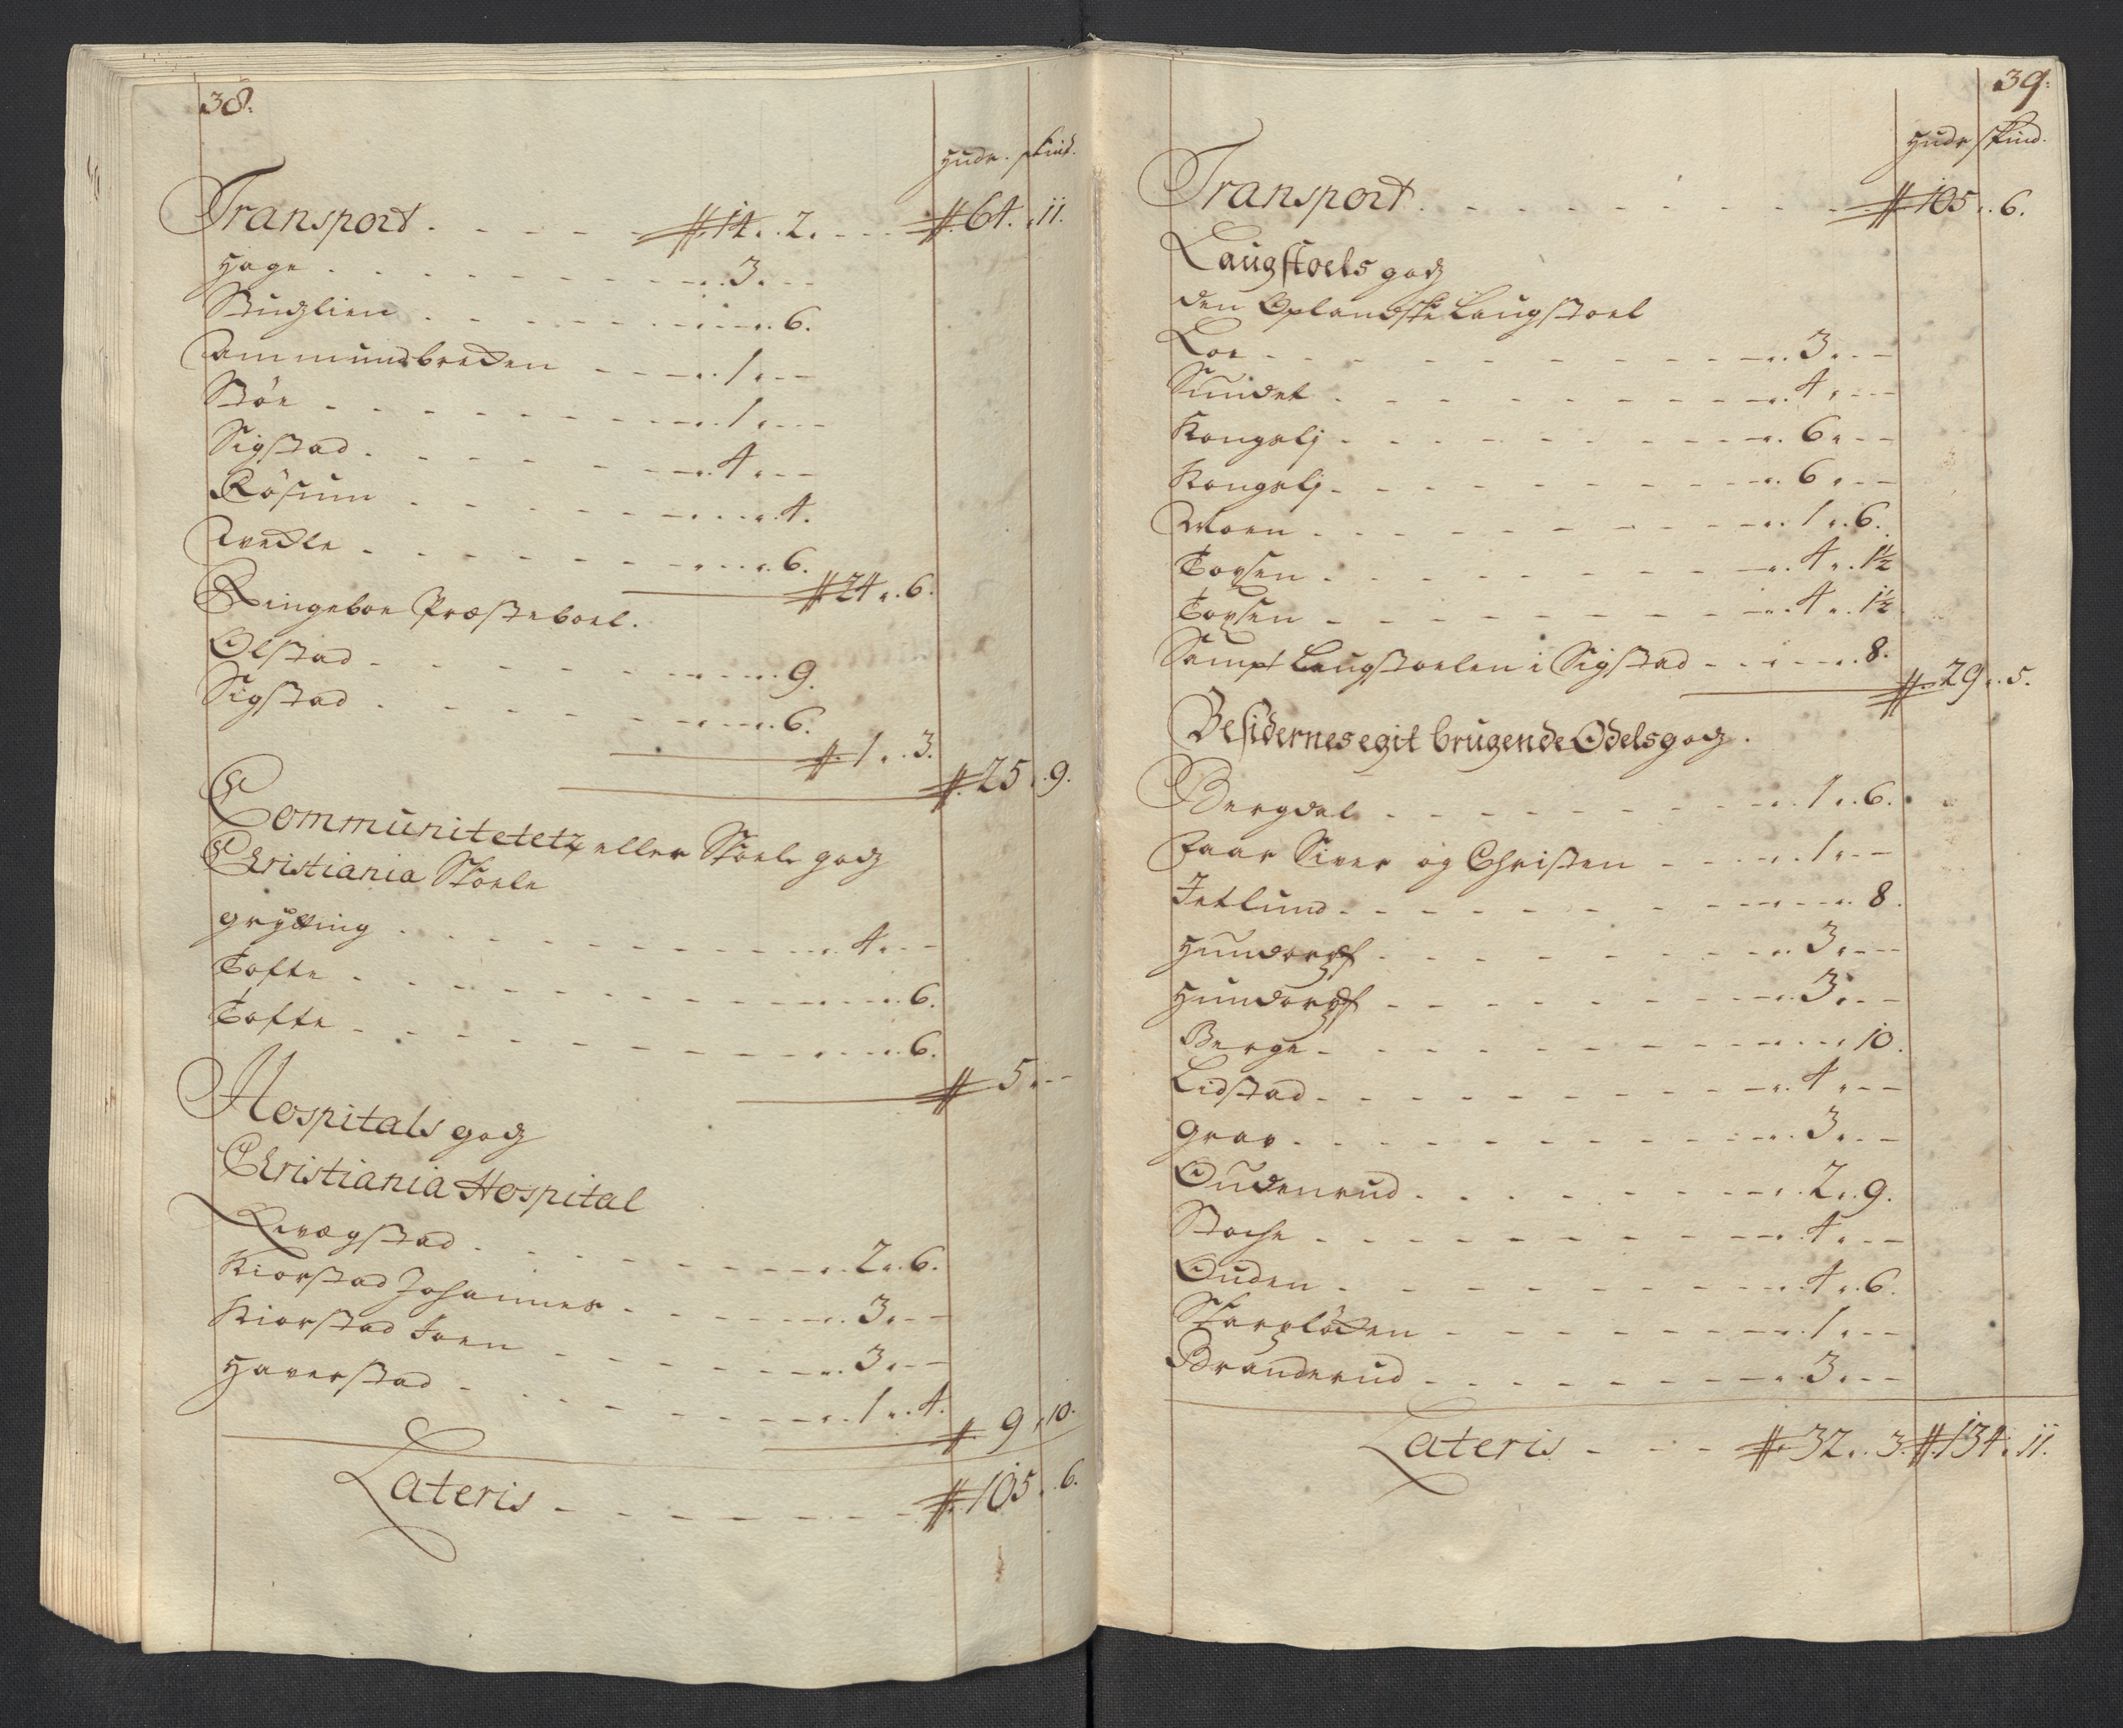 38.
Hude. skind.
Transport. - - - - # 14. 2. - - - # 64. 11.
Hage - - - 3. - -
Stuglien - - - 6.
Ammundbrecken - - - 1. - -
Støe - - - 1. - -
Sigstad - - - 4. - -
Røsum - - - 4.
Tredle - - - 6.
# 24. 6.
Ringeboe Præsteboel.
Olstad - - - 9.
Sigstad - - - 6.
# 1. 3.
# 25. 9.
Communitetetz eller Skoele godz
Christiania Skoele
Grytting - - - 4. - -
Tofte - - - 6.
Tofte - - - 6.
# 5. - -
Hospitals godz
Christiania Hospital
Qvægstad - - - 2. 6.
Kiorstad Johannes - - - 3. - -
Kiorstad Joen - - - 3. - -
Haverstad - - - 1. 4.
# 9. 10.
Lateris - - - # 105. 6.
39.
Hude skind.
Transport. - - - # 105. 6.
Laugstoels godz
Den Oplandske Laugstoel
Loe - - - 3. - -
Sundet - - - 4. - -
Kongslj - - - 6. - -
Kongslj - - - 6. - -
Moen - - - 1. 6.
Toxsen - - - 4. 1½
Toxsen - - - 4. 1½
Sampt Laugstoelen i Sigstad - - - 8.
# 29. 5.
Besidernes egit brugende Odelsgodz.
Bergdal - - - 1. 6.
Faar Siver og Christen - - - 1. - -
Jetlund - - - 8.
Hundorpf - - - 3. - -
Hundorpf - - - 3. - -
Berge - - - 10.
Lidstad - - - 4. - -
Grav - - - 3. - -
Oudenrud - - - 2. 9.
Stoche - - - 4. - -
Ouden - - - 4. 6.
Skarpløcken - - - 1. - -
Branderud - - - 3. - -
Lateris - - - # 32. 3. # 134. 11.